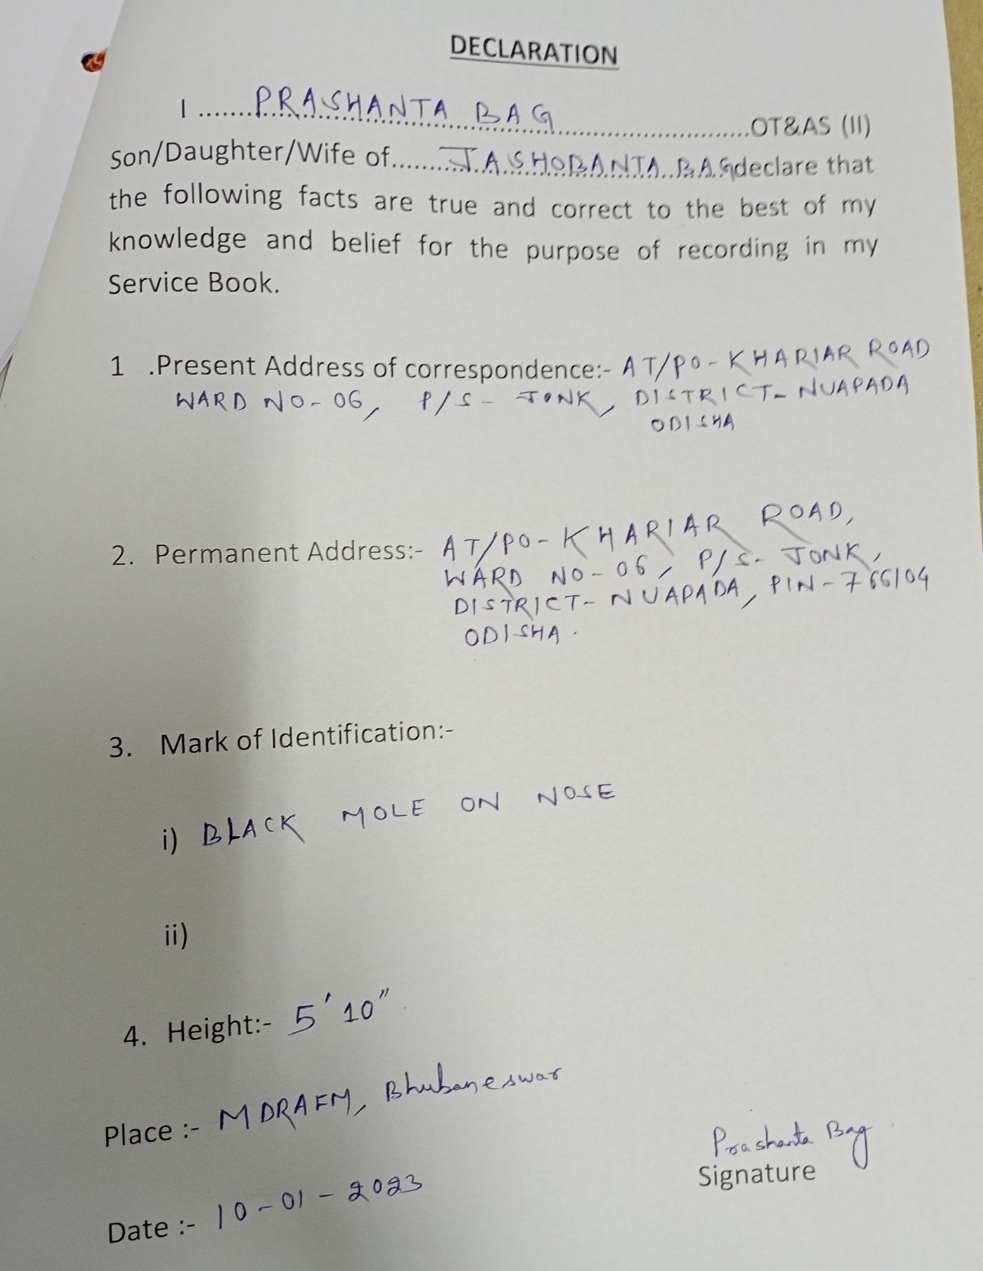 DECLARATION
I .......PRASHANTA BAG..............................OT&AS (II)
Son/Daughter/Wife of.......JASHOBANTA BAG declare that
the following facts are true and correct to the best of my
knowledge and belief for the purpose of recording in my
Service Book.
1 .Present Address of correspondence:- AT/PO-KHARIAR ROAD
WARD NO-06, P/S- JONK, DISTRICT- NUAPADA
ODISHA
2. Permanent Address:- AT/PO-KHARIAR ROAD,
WARD NO-06, P/S- JONK,
DISTRICT- NUAPADA, PIN-766104
ODISHA.
3. Mark of Identification:-
i) BLACK MOLE ON NOSE
ii)
4. Height:- 5'10"
Place :- MDRAFM, Bhubaneswar
Prashanta Bag
Signature
Date :- 10-01-2023